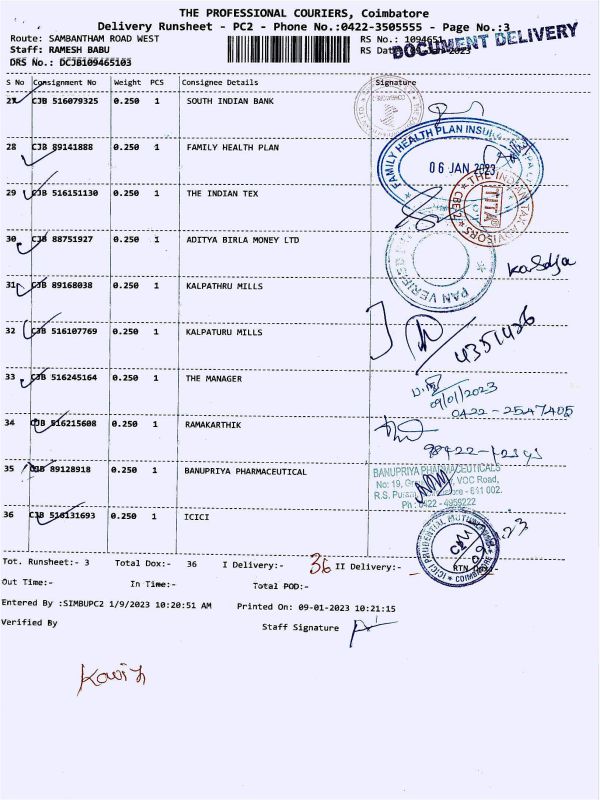 THE PROFESSIONAL COURIERS, Coimbatore
Delivery Runsheet - PC2 - Phone No.:0422-3505555 - Page No.:3
Route: SAMBANTHAM ROAD WEST RS No.: 1094651
Staff: RAMESH BABU RS Dat 2023
DOCUMENT DELIVERY
DRS No.: DCJB109465103
S No Consignment No Weight PCS Consignee Details Signature
27 CJB 516079325 0.250 1 SOUTH INDIAN BANK
28 CJB 89141888 0.250 1 FAMILY HEALTH PLAN
FAMILY HEALTH PLAN INSU
06 JAN 2023
29 CJB 516151130 0.250 1 THE INDIAN TEX
THE INDIAN TAX ADVISORS
TITA
CBE
30 CJB 88751927 0.250 1 ADITYA BIRLA MONEY LTD
PAN VERIFIED
31 CJB 89168038 0.250 1 KALPATHRU MILLS
32 CJB 516107769 0.250 1 KALPATURU MILLS
4351426
33 CJB 516245164 0.250 1 THE MANAGER
09/01/2023
0422-2547405
34 CJB 516215608 0.250 1 RAMAKARTHIK
35 CJB 89128918 0.250 1 BANUPRIYA PHARMACEUTICAL
BANUPRIYA PHARMACEUTICALS
No: 19, VOC Road,
R.S. Pu ore - 641 002.
Ph : 0422 - 4959222
36 CJB 516131693 0.250 1 ICICI
ICICI PRUDENTIAL MUTUAL
COIMBATORE
Tot. Runsheet:- 3 Total Dox:- 36 I Delivery:- 36 II Delivery:- RTN
Out Time:- In Time:- Total POD:-
Entered By :SIMBUPC2 1/9/2023 10:20:51 AM Printed On: 09-01-2023 10:21:15
Verified By Staff Signature